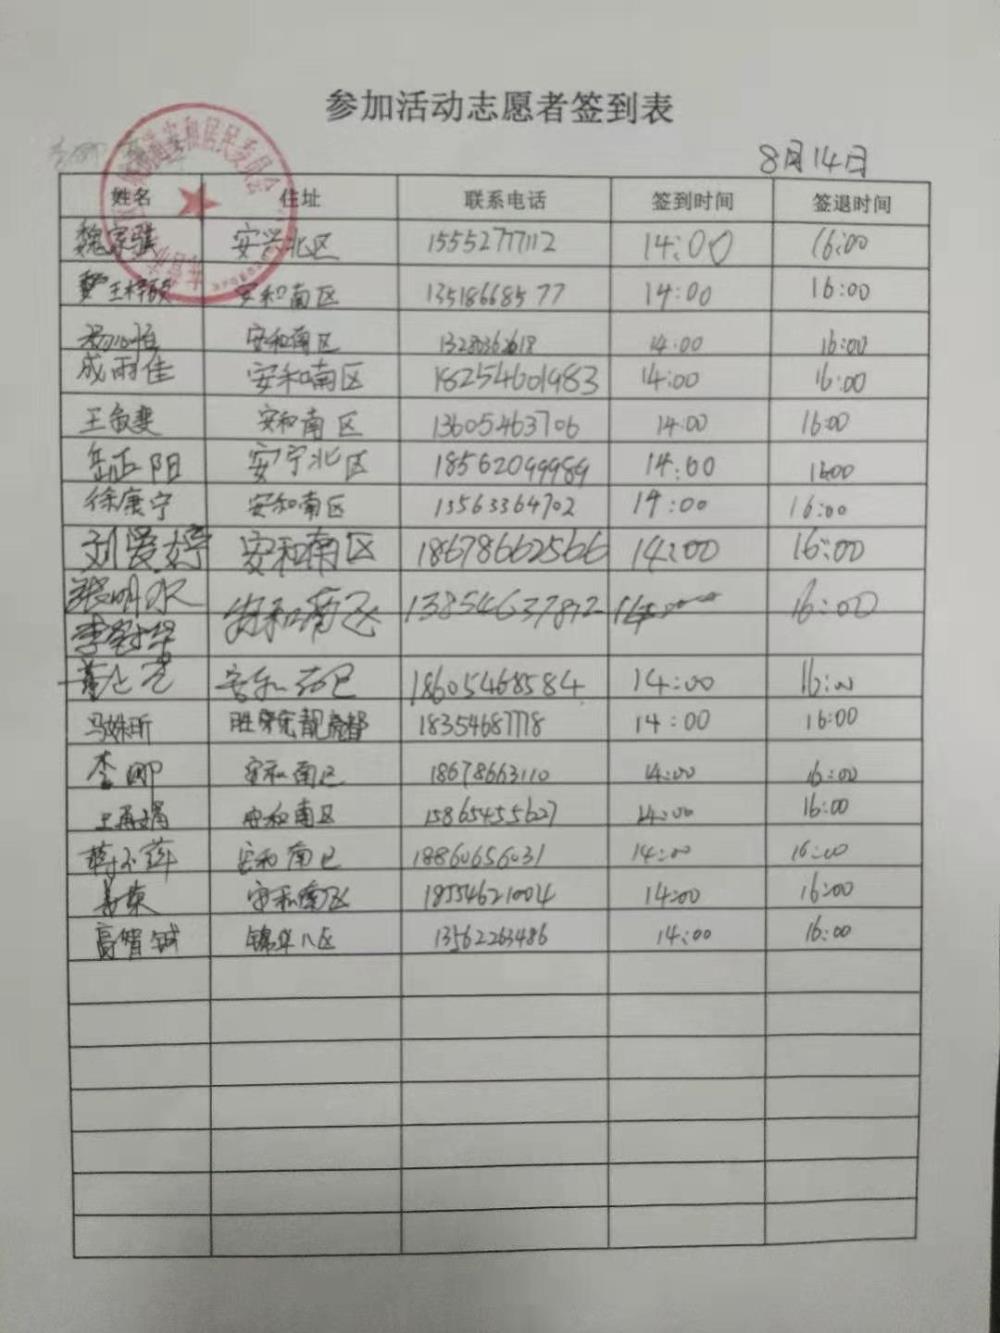 参加活动志愿者签到表
8月14日
姓名 住址 联系电话 签到时间 签退时间
魏家骐 安兴北区 15552777112 14:00 16:00
王梓硕 安和南区 13518668577 14:00 16:00
安和南区 14:00 16:00
成雨佳 安和南区 18254601983 14:00 16:00
王敏斐 安和南区 13605463706 14:00 16:00
岳正阳 安宁北区 18562099989 14:00 16:00
徐康宁 安和南区 13563364702 14:00 16:00
刘爱婷 安和南区 18678662566 14:00 16:00
张明水 安和南区 13854637872 16:00
18605468584 14:00 16:00
冯姝昕 18354687778 14:00 16:00
李娜 安和南区 18678663110 14:00 16:00
安和南区 15865455627 14:00 16:00
安和南区 18860656031 14:00 16:00
姜荣 安和南区 18554621004 14:00 16:00
高智铖 锦华八区 13562263486 14:00 16:00